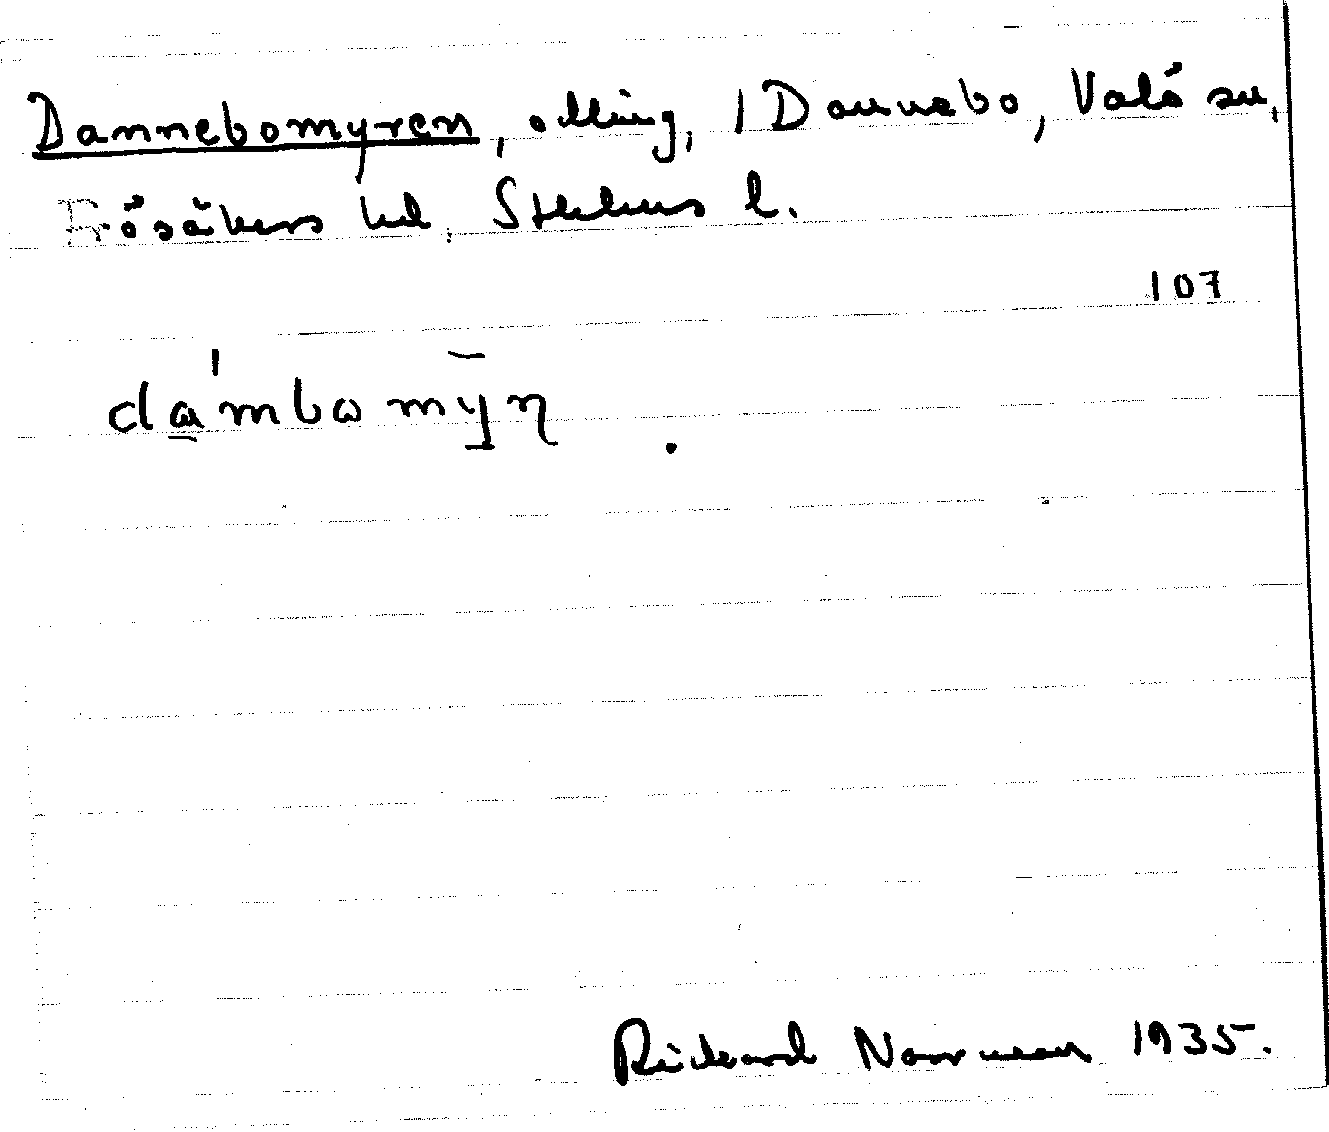 Dannebomyren, odling, 1 Dannebo, Valö sn,
Frösåkers hd, Sthlms l.
107
da'mbomȳn
Rickard Norrman 1935.